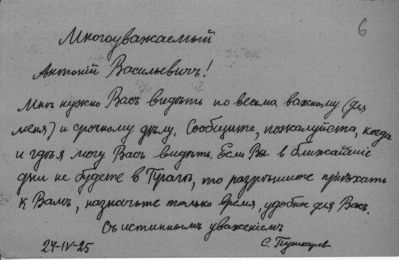 6
Многоуважаемый
Антоній Васильевичъ!
Мнѣ нужно Васъ видѣть по весьма важному (для
меня) и срочному дѣлу. Сообщите, пожалуйста, когда
и гдѣ я могу Васъ видѣть. Если Вы в ближайшіе
дни не будете в Прагѣ, то разрѣшите пріѣхать
к Вамъ, назначьте только время, удобное для Васъ.
Съ истиннымъ уваженіемъ
24-IV-25 С. Пушкарев